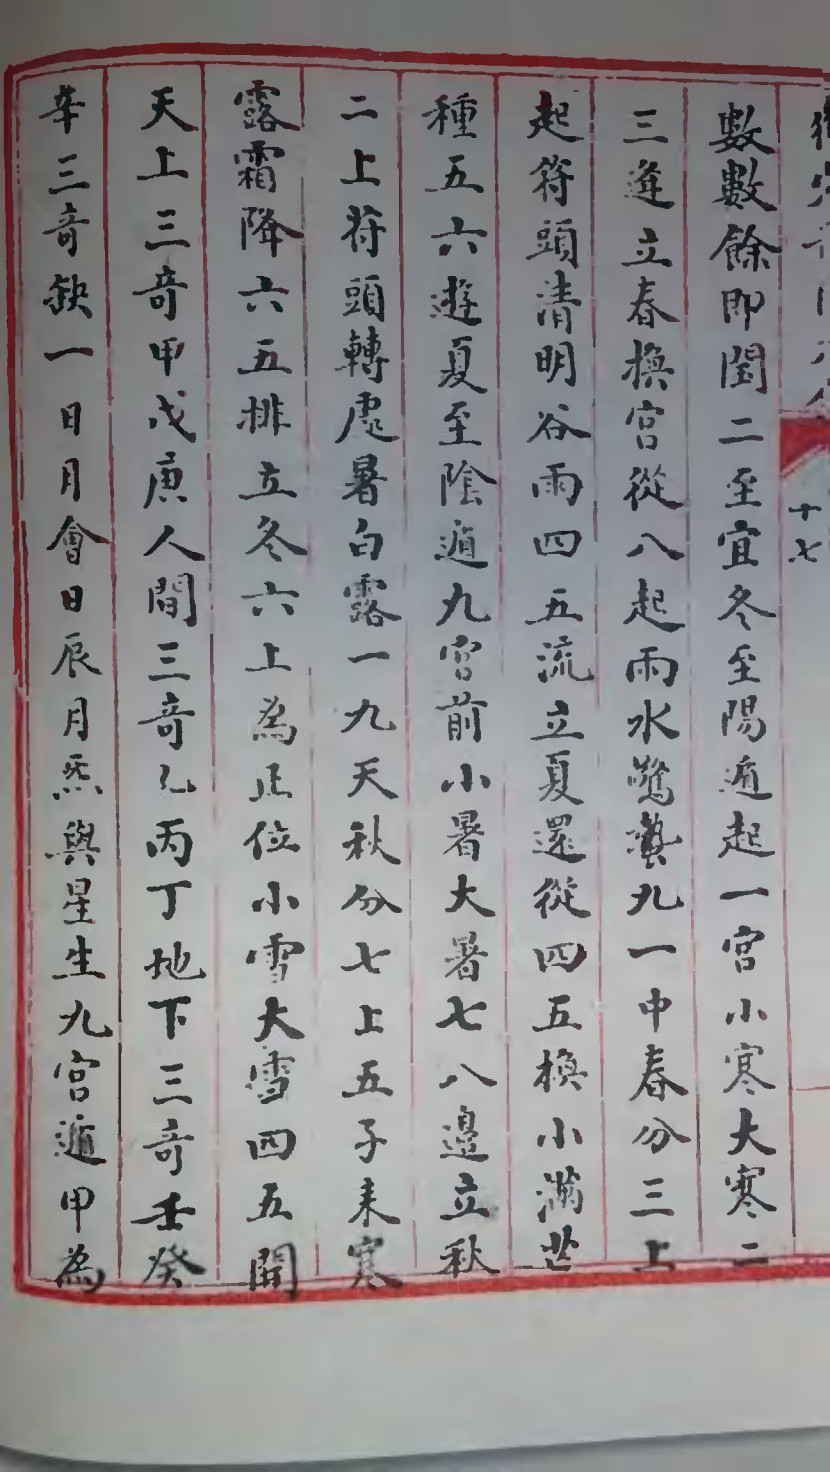 十七
數數餘即閏二至宜冬至陽遁起一宮小寒大寒二
三逢立春換宮從八起雨水驚蟄九一中春分三上
起符頭清明谷雨四五流立夏還從四五換小滿芒
種五六遊夏至陰遁九宮前小暑大暑七八邊立秋
二上符頭轉處暑白露一九天秋分七上五子來寒
露霜降六五排立冬六上為正位小雪大雪四五開
天上三竒甲戊庚人間三竒乙丙丁地下三竒壬癸
辛三竒缺一日月會日辰月炁與星生九宮遁甲為